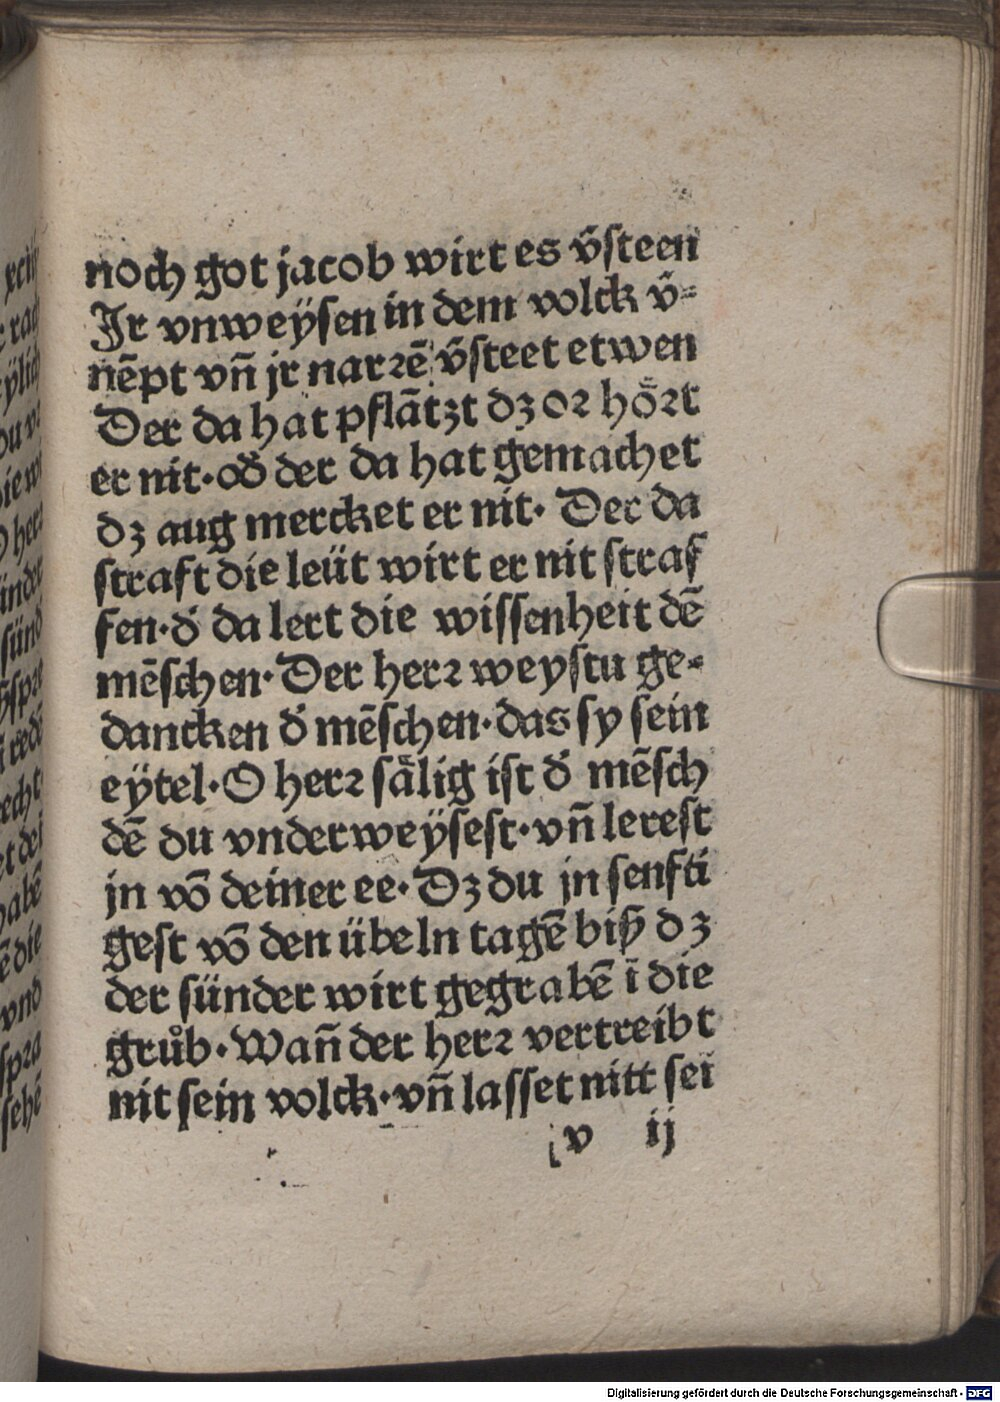 noch got jacob wirt es v̄steen
Jr vnweÿsen in dem volck v̄⸗
nēpt vn̄ jr narrē v̄steet etwen
Der da hat pflātzt dz or hört
er nit·od̄ der da hat gemachet
dz aug mercket er nit· Der da
straft die leüt wirt er nit straf
fen·d̄ da lert die wissenheit dē
mēschen· Der herr weystu ge⸗
dancken d̄ mēschen·das sy sein
eÿtel·O herr sälig ist d̄ mēsch
dē du vnderweÿsest·vn̄ lerest
jn vō deiner ee·Dz du jn senfti
gest vō den übeln tagē biß dz
der sünder wirt gegrabē ī die
grůb·Wan̄ der herr vertreibt
nit sein volck·vn̄ lasset nitt sei
v ij
Digitalisierung gefördert durch die Deutsche Forschungsgemeinschaft - DFG